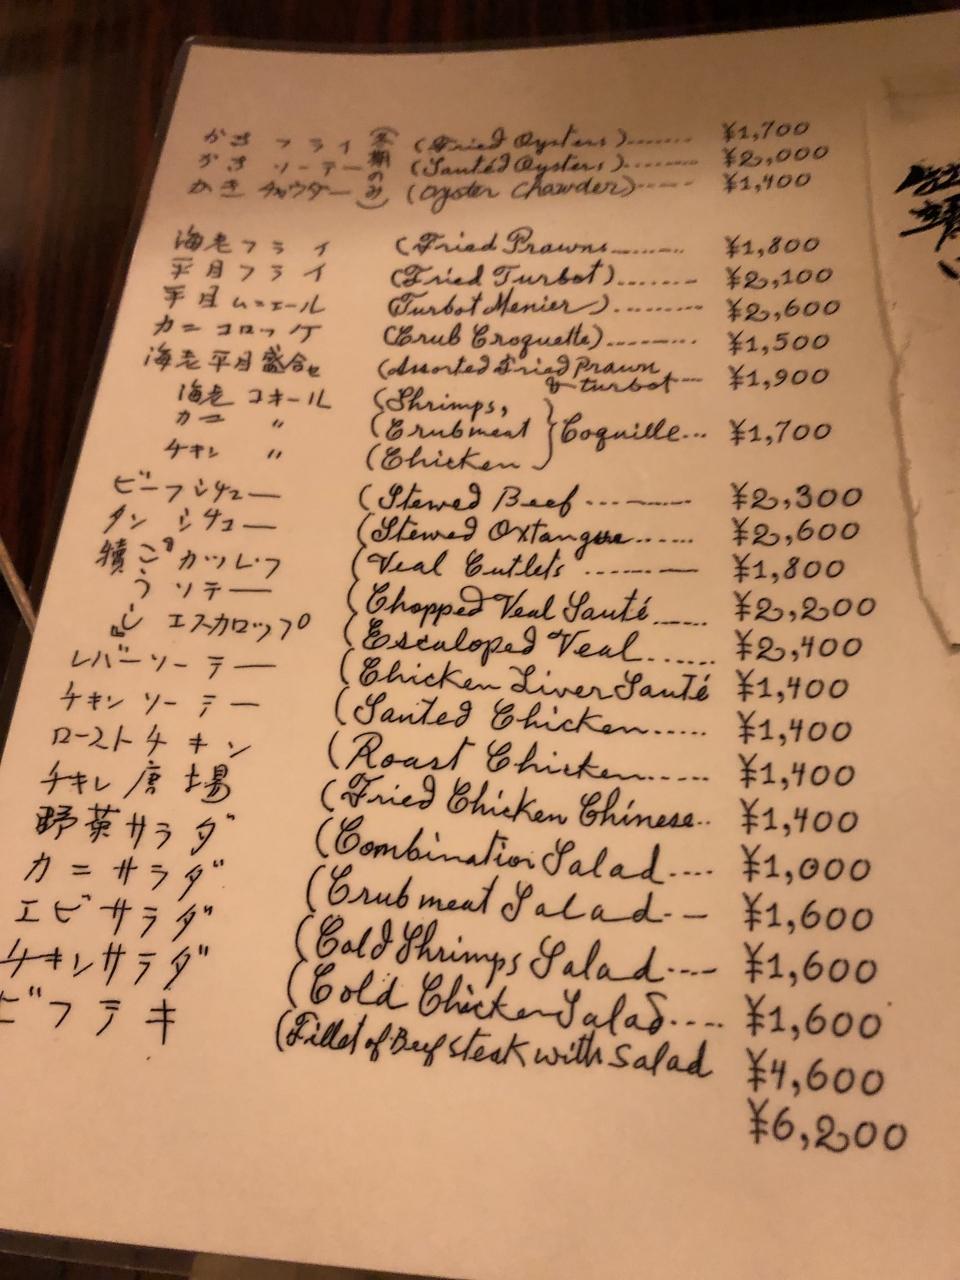 かきフライ (Fried Oysters)........ ¥1,700
かきソーテー (Sauted Oysters)........ ¥2,000
かきチャウダー (冬期のみ) (Oyster Chawder)----- ¥1,400
海老フライ (Fried Prawns........ ¥1,800
平目フライ (Fried Turbot)........ ¥2,100
平目ムニエール (Turbot Menier)......... ¥2,600
カニコロッケ (Crub Croquette)........ ¥1,500
海老平目盛合せ (Assorted Fried Prawn
& turbot--- ¥1,900
海老コキール (Shrimps,
カニ 〃 (Crubmeat } Coquille... ¥1,700
チキン 〃 (Chicken
ビーフシチュー (Stewed Beef ---------- ¥2,300
タンシチュー (Stewed Oxtangue....... ¥2,600
犢こうしカツレツ (Veal Cutlets --------- ¥1,800
〃 ソテー (Chopped Veal Sauté...... ¥2,200
〃 エスカロップ (Escaloped Veal....... ¥2,400
レバーソーテー (Chicken Liver Sauté ¥1,400
チキンソーテー (Sauted Chicken...... ¥1,400
ローストチキン (Roast Chicken...... ¥1,400
チキン唐揚 (Fried Chicken Chinese.. ¥1,400
野菜サラダ (Combination Salad.... ¥1,000
カニサラダ (Crubmeat Salad--- ¥1,600
エビサラダ (Cold Shrimps Salad.... ¥1,600
チキンサラダ (Cold Chicken Salad.... ¥1,600
ビフテキ (Fillet of Beef steak with Salad ¥4,600
¥6,200